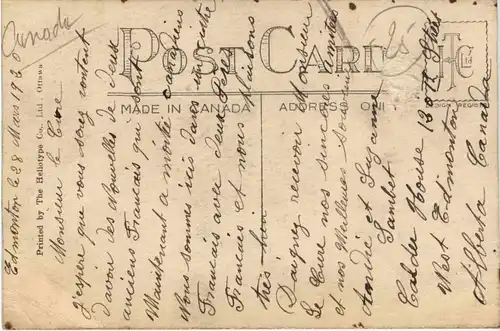 Canada
POST CARD
MADE IN CANADA
ADDRESS ONL
Printed by The Heliotype Co., Ltd., Ottawa
Edmonton le 28 Mars 1928
Monsieur le Cure
J'espere que vous serez content
d'avoir des Nouvelles de deux
anciens Français qui sont
Maintenant a moitié canadiens
Nous sommes ici dans un centre
Français avec deux
Français et nous
très bien
Daignez recevoir Monsieur
le Cure nos sinceres amities
et nos Meilleures Souvenir
André et Suzanne
Calder House 130th Street
West Edmonton
Alberta Canada